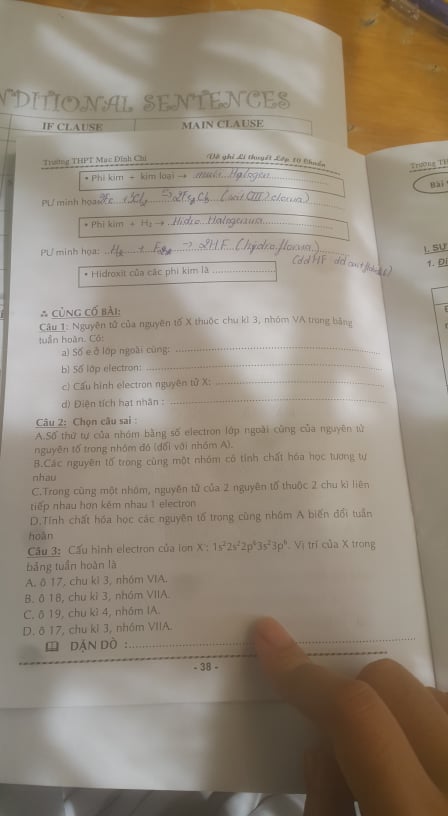 NDITIONAL SENTENCES
IF CLAUSE MAIN CLAUSE
Trường THPT Mạc Đĩnh Chi Vở ghi Lí thuyết Lớp 10 Chuẩn
• Phi kim + kim loại → muối Halogen
PƯ minh họa:
• Phi kim + H₂ → Hidro Halogenua
PƯ minh họa: H₂ + F₂ → 2HF (hydro florua)
(dd HF
• Hidroxit của các phi kim là
CỦNG CỐ BÀI:
Câu 1: Nguyên tử của nguyên tố X thuộc chu kì 3, nhóm VA trong bảng
tuần hoàn. Có:
a) Số e ở lớp ngoài cùng:
b) Số lớp electron:
c) Cấu hình electron nguyên tử X:
d) Điện tích hạt nhân :
Câu 2: Chọn câu sai :
A.Số thứ tự của nhóm bằng số electron lớp ngoài cùng của nguyên tử
nguyên tố trong nhóm đó (đối với nhóm A).
B.Các nguyên tố trong cùng một nhóm có tính chất hóa học tương tự
nhau
C.Trong cùng một nhóm, nguyên tử của 2 nguyên tố thuộc 2 chu kì liên
tiếp nhau hơn kém nhau 1 electron
D.Tính chất hóa học các nguyên tố trong cùng nhóm A biến đổi tuần
hoàn
Câu 3: Cấu hình electron của ion X⁻: 1s²2s²2p⁶3s²3p⁶. Vị trí của X trong
bảng tuần hoàn là
A. ô 17, chu kì 3, nhóm VIA.
B. ô 18, chu kì 3, nhóm VIIA.
C. ô 19, chu kì 4, nhóm IA.
D. ô 17, chu kì 3, nhóm VIIA.
DẶN DÒ :
- 38 -
Trường TH
Bài
I. SỰ
1. Đi